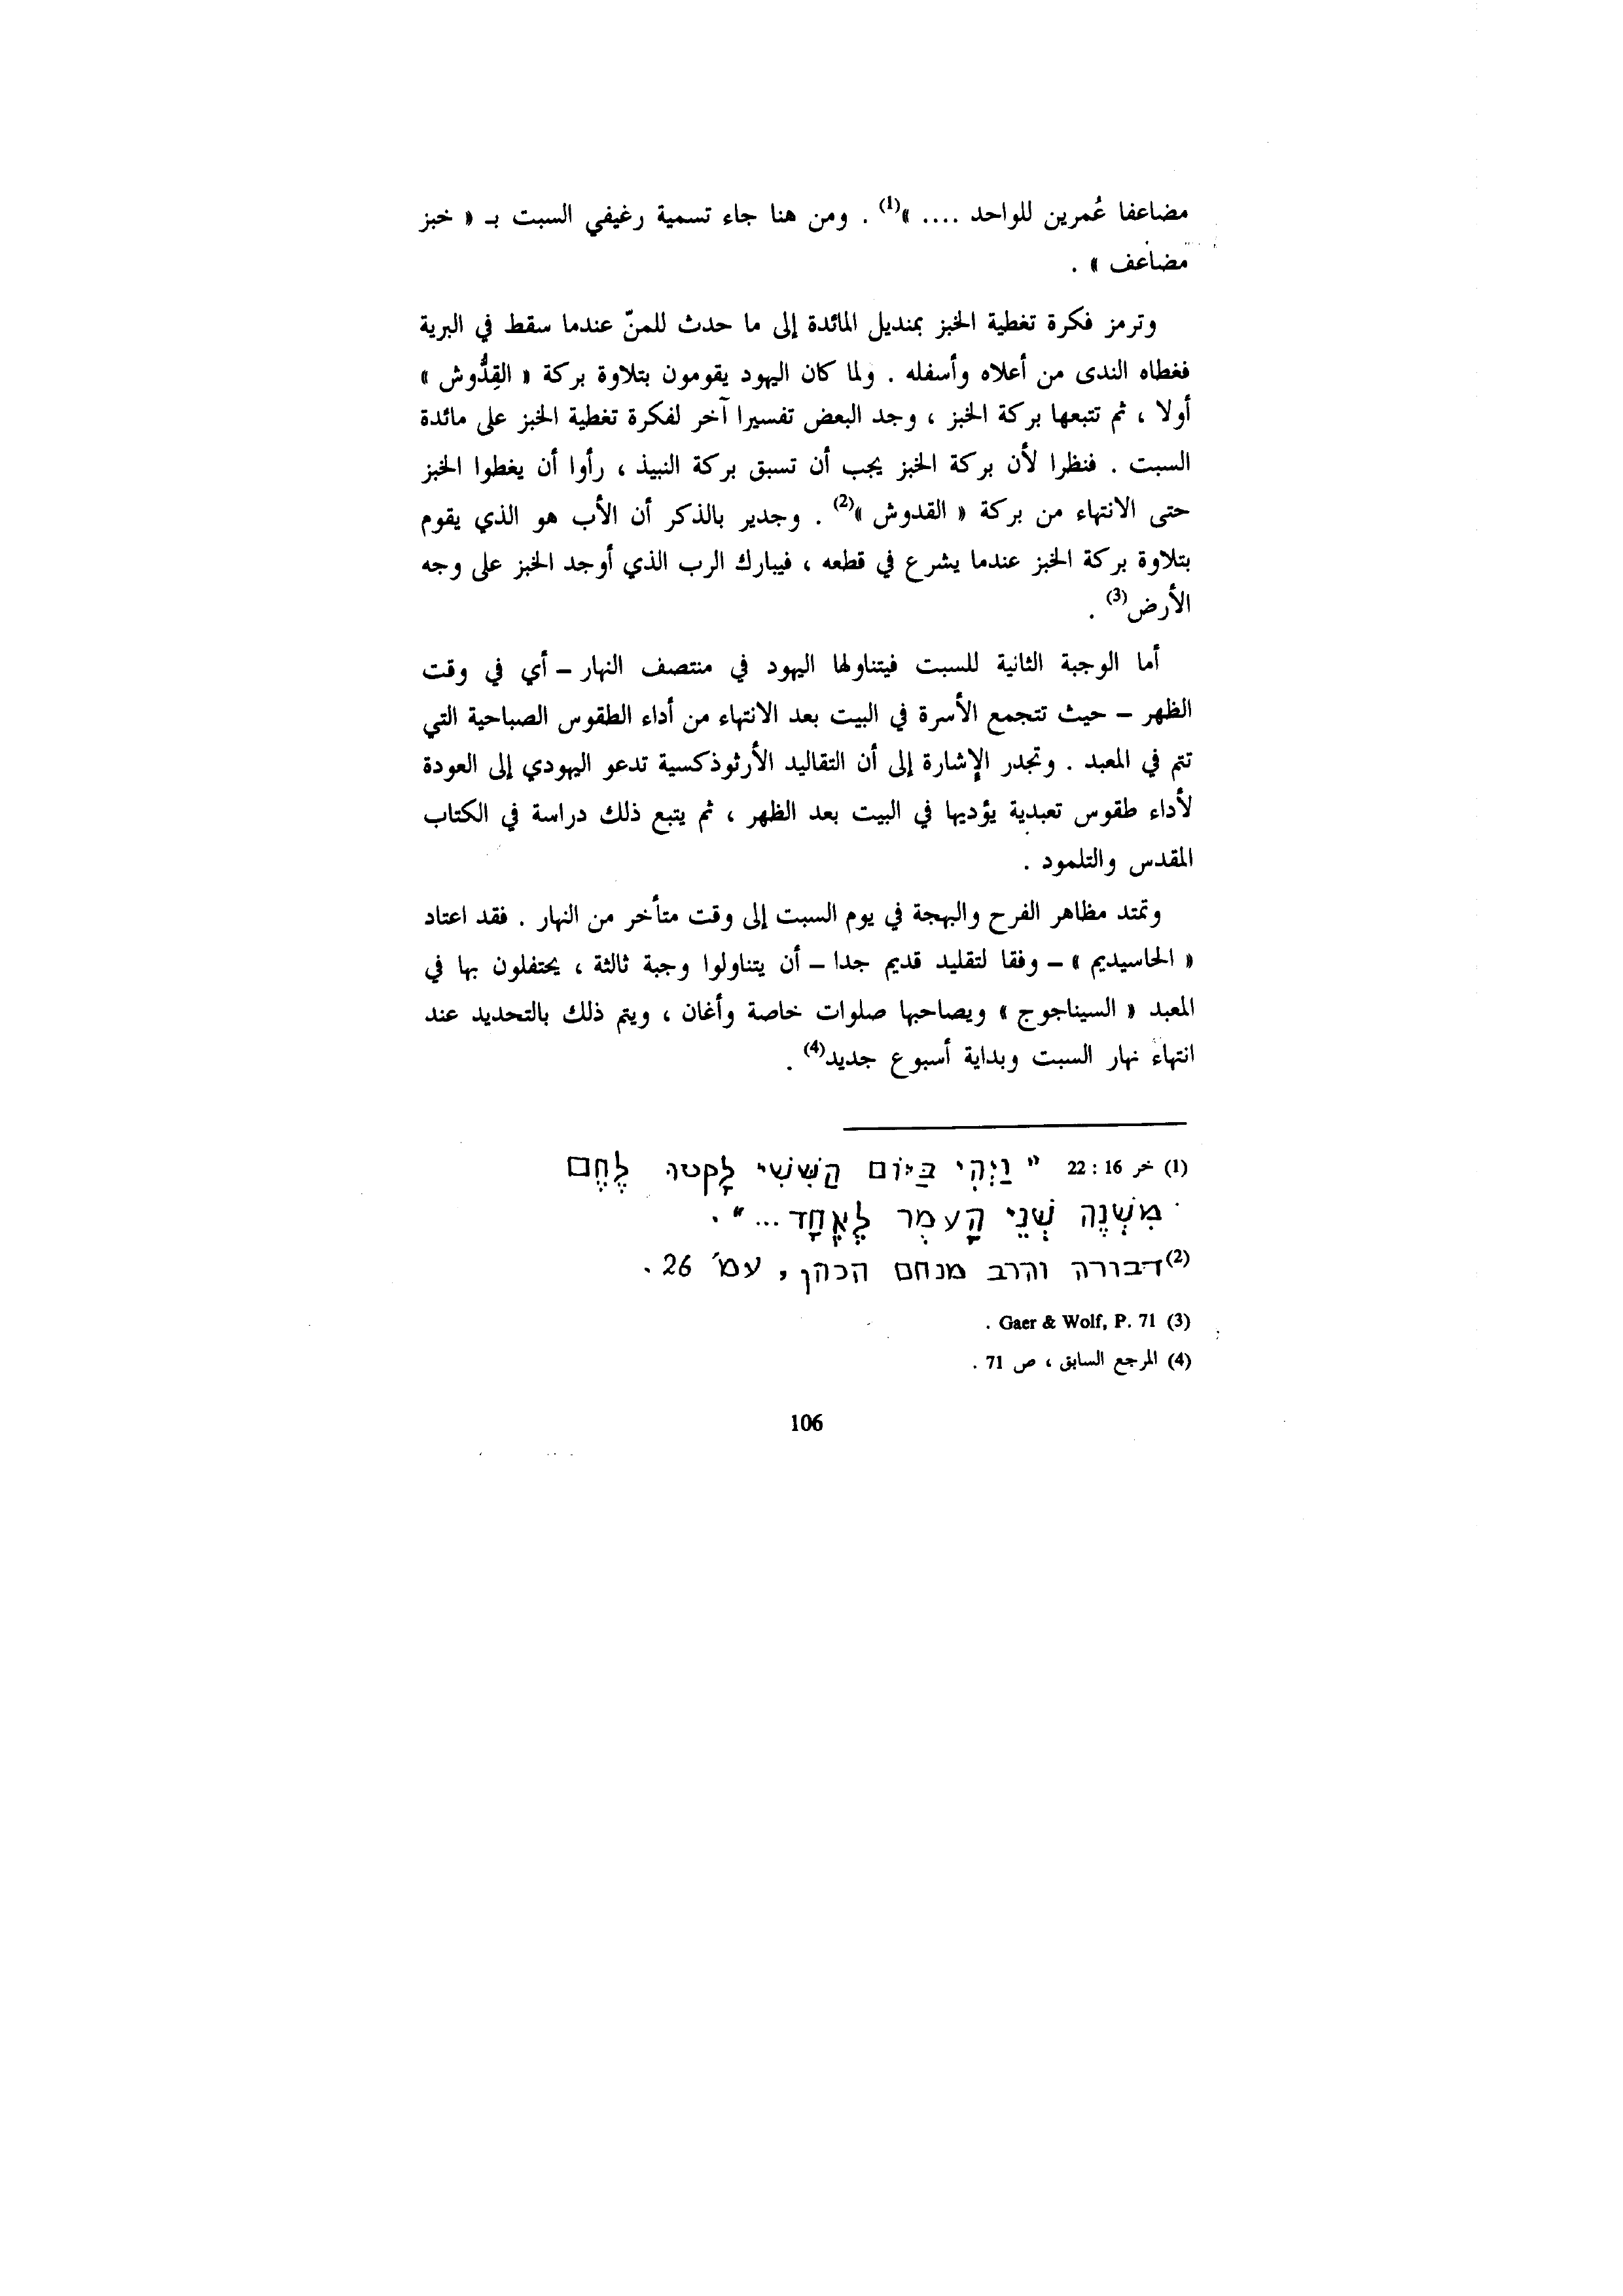 مضاعفا عُمرين للواحد .... »(1) . ومن هنا جاء تسمية رغيفي السبت بـ « خبز
مضاعف » .
وترمز فكرة تغطية الخبز بمنديل المائدة إلى ما حدث للمنّ عندما سقط في البرية
فغطاه الندى من أعلاه وأسفله . ولما كان اليهود يقومون بتلاوة بركة « القِدُّوش »
أولا ، ثم تتبعها بركة الخبز ، وجد البعض تفسيرا آخر لفكرة تغطية الخبز على مائدة
السبت . فنظرا لأن بركة الخبز يجب أن تسبق بركة النبيذ ، رأوا أن يغطوا الخبز
حتى الانتهاء من بركة « القدوش »(2) . وجدير بالذكر أن الأب هو الذي يقوم
بتلاوة بركة الخبز عندما يشرع في قطعه ، فيبارك الرب الذي أوجد الخبز على وجه
الأرض(3) .
أما الوجبة الثانية للسبت فيتناولها اليهود في منتصف النهار – أي في وقت
الظهر – حيث تتجمع الأسرة في البيت بعد الانتهاء من أداء الطقوس الصباحية التي
تتم في المعبد . وتجدر الإشارة إلى أن التقاليد الأرثوذكسية تدعو اليهودي إلى العودة
لأداء طقوس تعبدية يؤديها في البيت بعد الظهر ، ثم يتبع ذلك دراسة في الكتاب
المقدس والتلمود .
وتمتد مظاهر الفرح والبهجة في يوم السبت إلى وقت متأخر من النهار . فقد اعتاد
« الحاسيديم » – وفقا لتقليد قديم جدا – أن يتناولوا وجبة ثالثة ، يحتفلون بها في
المعبد « السيناجوج » ويصاحبها صلوات خاصة وأغان ، ويتم ذلك بالتحديد عند
انتهاء نهار السبت وبداية أسبوع جديد(4) .
(1) خر 16 : 22 " וַיְהִי בַּיּוֹם הַשִּׁשִּׁי לָקְטוּ לֶחֶם
מִשְׁנֶה שְׁנֵי הָעֹמֶר לָאֶחָד ..." .
(2) דבורה והרב מנחם הכהן , עמ' 26 .
(3) Gaer & Wolf, P. 71 .
(4) المرجع السابق ، ص 71 .
106